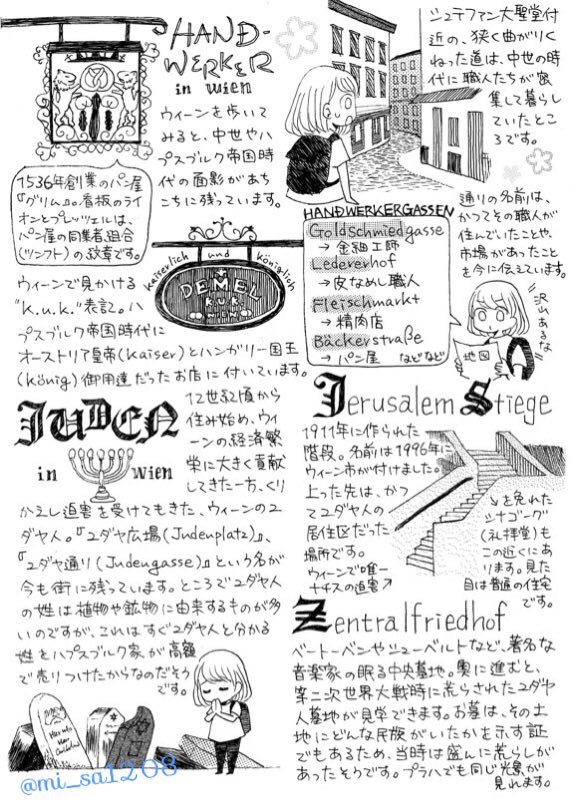 HAND-
WERKER
in wien
ウィーンを歩いて
みると、中世やハ
プスブルク帝国時
代の面影があち
こちに残っています。
1536年創業のパン屋
『グリム』。看板のライ
オンとプレッツェルは、
パン屋の同業者組合
(ツンフト)の紋章です。
kaiserlich und königlich
DEMEL
K.u.K.
WIEN
ウィーンで見かける
"k.u.k."表記。ハ
プスブルク帝国時代に
オーストリア皇帝(Kaiser)とハンガリー国王
(König)御用達だったお店に付いています。
シュテファン大聖堂付
近の、狭く曲がりく
ねった道は、中世の時
代に職人たちが密
集して暮らし
ていたとこ
ろです。
HANDWERKERGASSEN
Goldschmiedgasse
→金細工師
Ledererhof
→皮なめし職人
Fleischmarkt
→精肉店
Bäckerstraße
→パン屋 などなど
通りの名前は、
かつてその職人が
住んでいたことや、
市場があったこと
を今に伝えています。
沢山あるな
地図
JUDEN
in wien
12世紀頃から
住み始め、ウィ
ーンの経済繁
栄に大きく貢献
してきた一方、くり
かえし迫害を受けてもきた、ウィーンのユ
ダヤ人。『ユダヤ広場(Judenplatz)』、
『ユダヤ通り(Judengasse)』という名が
今も街に残っています。ところでユダヤ人
の姓は植物や鉱物に由来するものが多
いのですが、これはすぐユダヤ人と分かる
姓をハプスブルク家が高額
で売りつけたからなのだそう
です。
Jerusalem Stiege
1911年に作られた
階段。名前は1996年に
ウィーン市が付けました。
上った先は、かつ
てユダヤ人の
居住区だった
場所です。
ウィーンで唯一
ナチスの迫害↗
↘を免れた
シナゴーグ
(礼拝堂)も
この近くにあ
ります。見た
目は普通の住宅
です。
Zentralfriedhof
ベートーベンやシューベルトなど、著名な
音楽家の眠る中央墓地。奥に進むと、
第二次世界大戦時に荒らされたユダヤ
人墓地が見学できます。お墓は、その土
地にどんな民族がいたかを示す証
でもあるため、当時は盛んに荒らしが
あったそうです。プラハでも同じ光景が
見れます。
@mi_sa1208